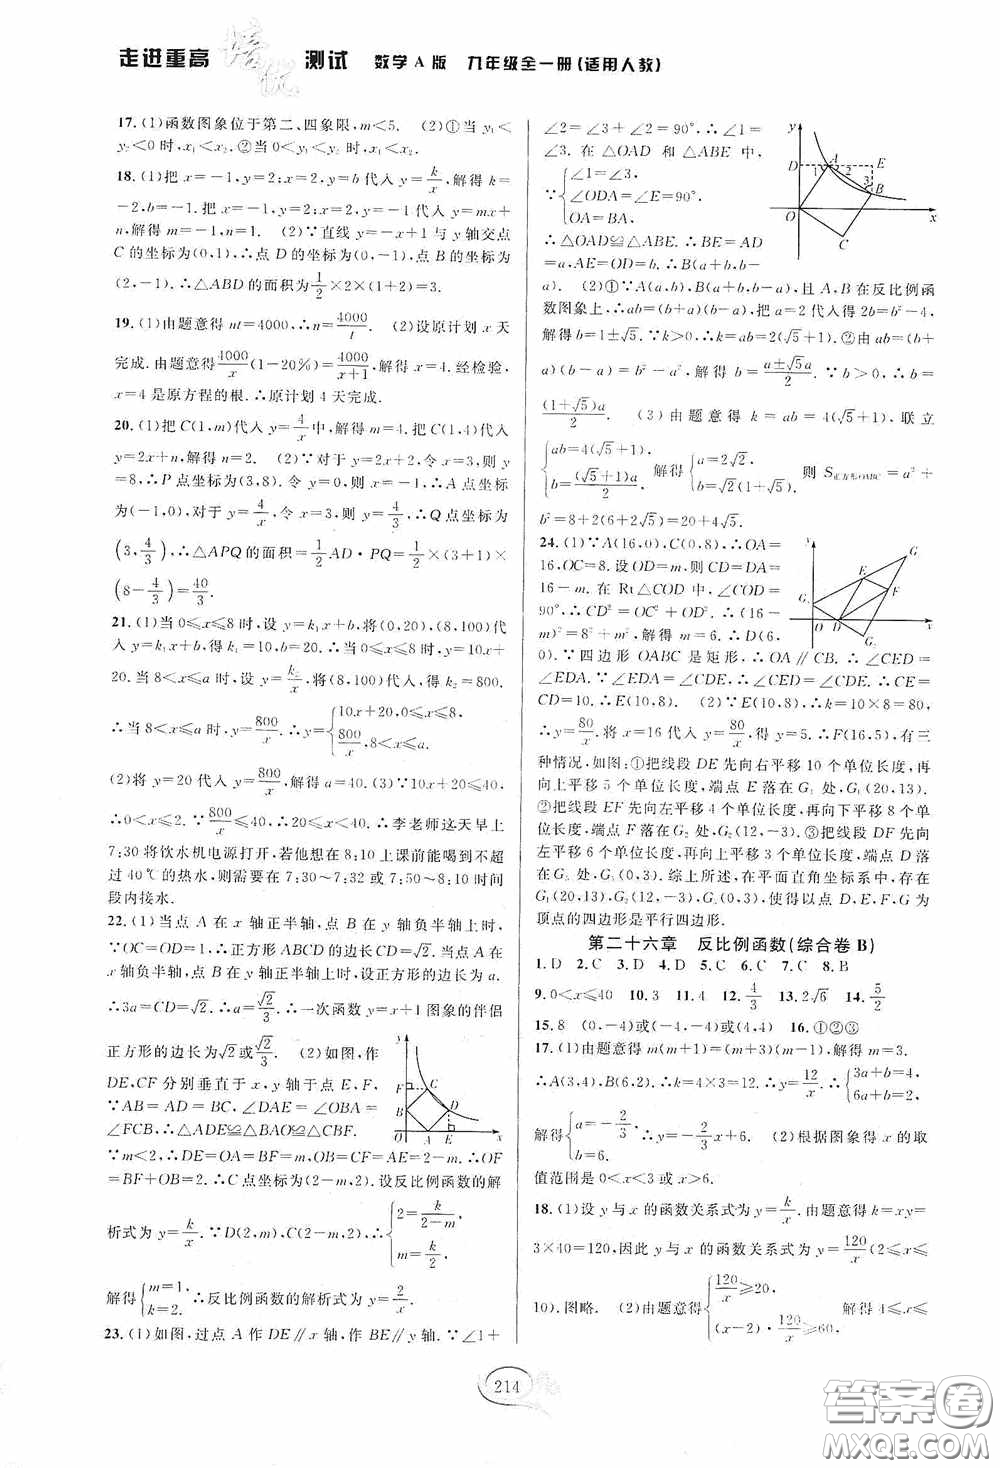 走进重高 培优 测试 数学A版 九年级全一册(适用人教)
17.(1)函数图象位于第二、四象限,m<5. (2)①当 y₁<
y₂<0 时,x₁<x₂. ②当 0<y₁<y₂ 时,x₁<x₂.
18.(1)把 x=-1,y=2;x=2,y=b 代入 y=k/x,解得 k=
-2,b=-1. 把 x=-1,y=2;x=2,y=-1 代入 y=mx+
n,解得 m=-1,n=1. (2)∵直线 y=-x+1 与 y 轴交点
C 的坐标为(0,1),∴点 D 的坐标为(0,-1),点 B 的坐标为
(2,-1),∴△ABD 的面积=1/2×2×(1+2)=3.
19.(1)由题意得 nt=4000,∴n=4000/t. (2)设原计划 x 天
完成. 由题意得 4000/x(1-20%)=4000/(x+1),解得 x=4. 经检验,
x=4 是原方程的根. ∴原计划 4 天完成.
20.(1)把 C(1,m)代入 y=4/x 中,解得 m=4. 把 C(1,4)代入
y=2x+n,解得 n=2. (2)∵对于 y=2x+2,令 x=3,则 y
=8,∴P 点坐标为(3,8). 令 y=0,则 x=-1,∴A 点坐标为
(-1,0),对于 y=4/x,令 x=3,则 y=4/3,∴Q 点坐标为
(3,4/3),∴△APQ 的面积=1/2 AD·PQ=1/2×(3+1)×
(8-4/3)=40/3.
21.(1)当 0≤x≤8 时,设 y=k₁x+b,将(0,20),(8,100)代
入 y=k₁x+b,得 k₁=10,b=20. ∴当 0≤x≤8 时,y=10x+
20. 当 8<x≤a 时,设 y=k₂/x,将(8,100)代入,得 k₂=800.
∴当 8<x≤a 时,y=800/x. ∴y={10x+20,0≤x≤8,
800/x,8<x≤a.
(2)将 y=20 代入 y=800/x,解得 a=40. (3)∵10x+20≤40,
∴0<x≤2. ∵800/x≤40,∴20≤x≤40. ∴李老师这天早上
7:30将饮水机电源打开,若他想在 8:10 上课前能喝到不超
过 40℃的热水,则需要在 7:30~7:32 或 7:50~8:10 时间
段内接水.
22.(1)当点 A 在 x 轴正半轴,点 B 在 y 轴负半轴上时,
∵OC=OD=1,∴正方形 ABCD 的边长CD=√2. 当点A在
x 轴负半轴,点 B 在 y 轴正半轴上时,设正方形的边长为a.
∴3a=CD=√2. ∴a=√2/3. ∴一次函数 y=x+1 图象的伴侣
正方形的边长为√2或√2/3. (2)如图,作
DE,CF 分别垂直于 x,y 轴于点 E,F,
∵AB=AD=BC,∠DAE=∠OBA=
∠FCB,∴△ADE≌△BAO≌△CBF.
∵m<2,∴DE=OA=BF=m,OB=CF=AE=2-m. ∴OF
=BF+OB=2. ∴C 点坐标为(2-m,2). 设反比例函数的解
析式为 y=k/x. ∵D(2,m),C(2-m,2),∴{2=k/(2-m),
m=k/2.
解得{m=1,
k=2. ∴反比例函数的解析式为 y=2/x.
23.(1)如图,过点 A 作 DE∥x 轴,作 BE∥y 轴. ∵∠1+
F C B D O A E x
∠2=∠3+∠2=90°,∴∠1=
∠3. 在 △OAD 和 △ABE 中,
{∠1=∠3,
∠ODA=∠E=90°,
OA=BA,
∴△OAD≌△ABE. ∴BE=AD
=a,AE=OD=b. ∴B(a+b,b-
a). (2)①∵A(a,b),B(a+b,b-a),且 A,B 在反比例函
数图象上,∴(b+a)(b-a)=ab,把 a=2 代入得 2b=b²-4,
解得 b=1±√5. ∵k>0,∴k=ab=2(√5+1). ②由 ab=(b+
a)(b-a)=b²-a²,解得 b=(a±√5a)/2. ∵b>0,∴b=
(1+√5)a/2. (3)由题意得 k=ab=4(√5+1),联立
{ab=4(√5+1),
b=(√5+1)a/2. 解得{a=2√2,
b=√2(1+√5). 则 S正方形OABC=a²+
b²=8+2(6+2√5)=20+4√5.
y D A E 1 2 3 B O x C
24.(1)∵A(16,0),C(0,8),∴OA=
16,OC=8. 设 OD=m,则 CD=DA=
16-m. 在 Rt△COD 中,∠COD=
90°,∴CD²=OC²+OD². ∴(16-
m)²=8²+m²,解得 m=6. ∴D(6,
0). ∵四边形 OABC 是矩形,∴OA∥CB. ∴∠CED=
∠EDA. ∵∠EDA=∠CDE,∴∠CED=∠CDE. ∴CE=
CD=10. ∴E(10,8). (2)∵E(10,8),∴k=10×8=80,
∴y=80/x. 将 x=16代入 y=80/x,得 y=5. ∴F(16,5),有三
种情况,如图:①把线段 DE 先向右平移 10 个单位长度,再
向上平移 5 个单位长度,端点 E 落在 G₁ 处,G₁(20,13).
②把线段 EF 先向左平移 4 个单位长度,再向下平移 8 个单
位长度,端点 F 落在 G₂ 处,G₂(12,-3). ③把线段 DF 先向
左平移 6 个单位长度,再向上平移 3 个单位长度,端点 D 落
在 G₃ 处,G₃(0,3). 综上所述,在平面直角坐标系中,存在
G₁(20,13),G₂(12,-3),G₃(0,3),使得以点 D,E,F,G 为
顶点的四边形是平行四边形.
第二十六章 反比例函数(综合卷 B)
1.D 2.C 3.D 4.D 5.C 6.C 7.C 8.B
9.0<x≤40 10.3 11.4 12.4/3 13.2√6 14.5/2
15.8 (0,-4)或(-4,-4)或(4,4) 16.①②③
17.(1)由题意得 m(m+1)=(m+3)(m-1),解得 m=3.
∴A(3,4),B(6,2),∴k=4×3=12,∴y=12/x,∴{3a+b=4,
6a+b=2,
解得{a=-2/3,
b=6. ∴y=-2/3x+6. (2)根据图象得 x 的取
值范围是 0<x<3 或 x>6.
18.(1)设 y 与 x 的函数关系式为 y=k/x. 由题意得 k=xy=
3×40=120,因此 y 与 x 的函数关系式为 y=120/x(2≤x≤
10),图略. (2)由题意得{120/x≥20,
(x-2)·120/x≥60. 解得 4≤x≤
214
答案圈
MXQE.COM